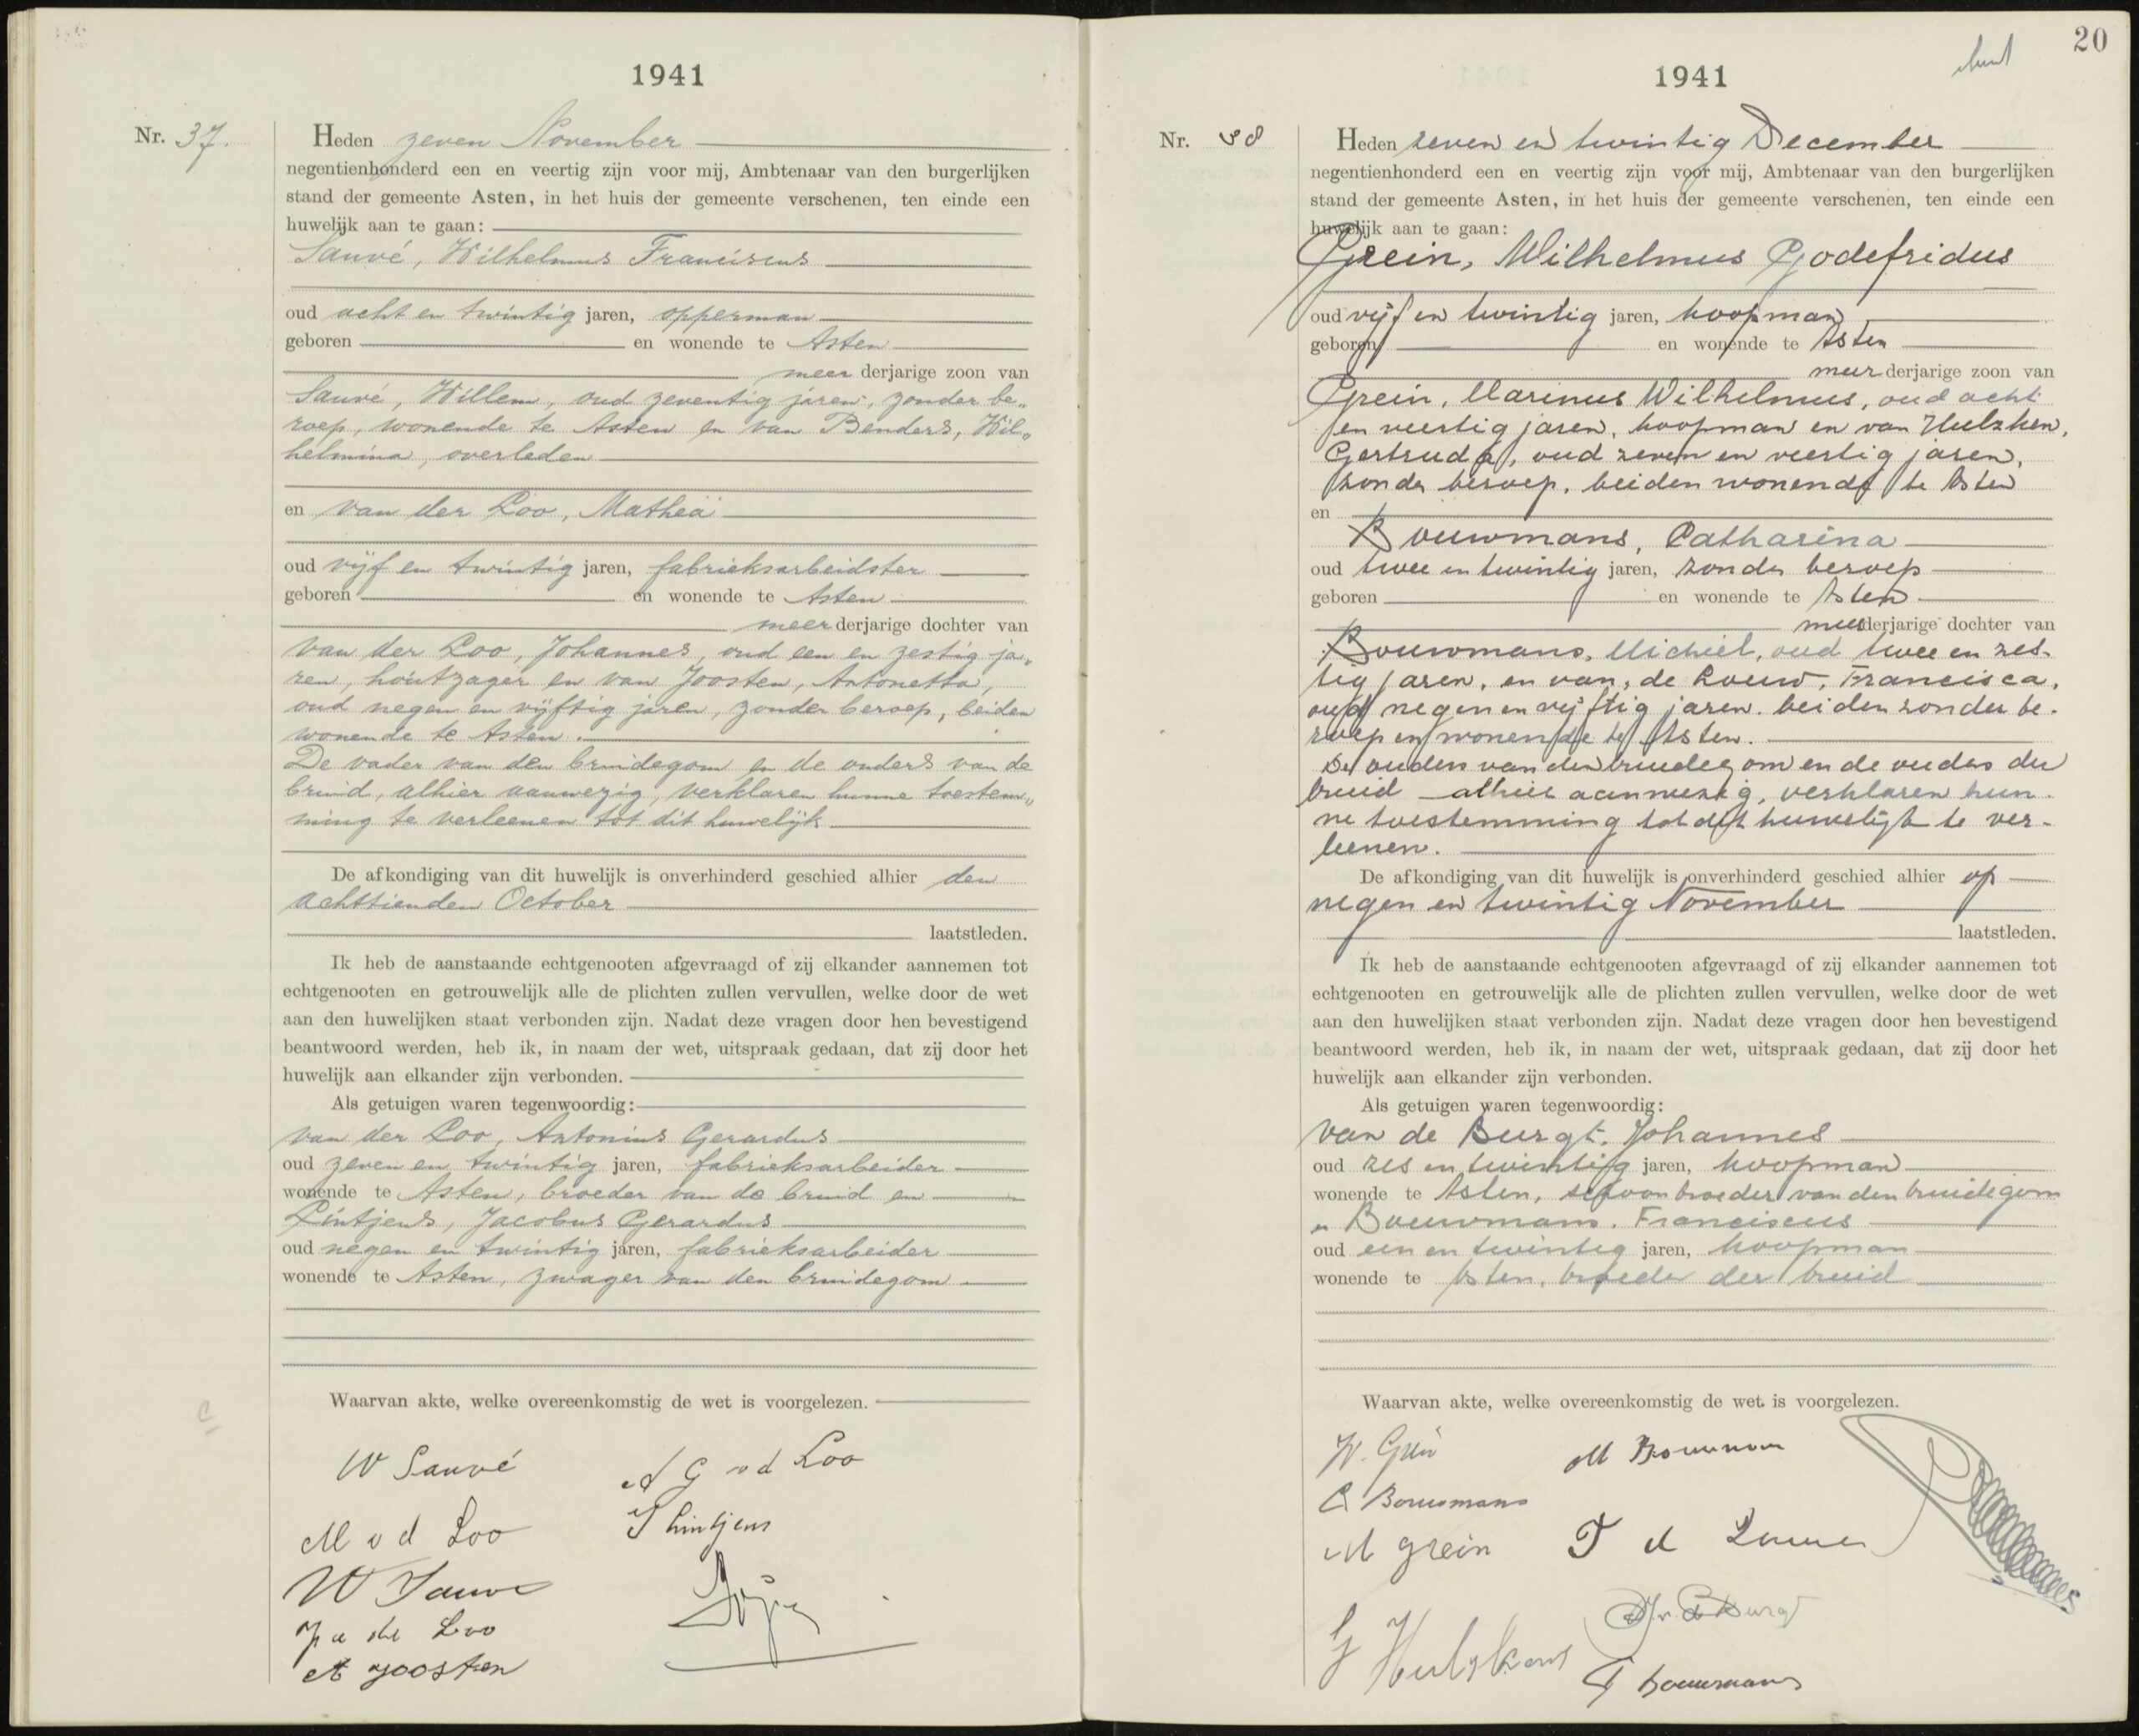 1941
Nr. 37.
Heden zeven November
negentienhonderd een en veertig zijn voor mij, Ambtenaar van den burgerlijken
stand der gemeente Asten, in het huis der gemeente verschenen, ten einde een
huwelijk aan te gaan:
Sauvé, Wilhelmus Franciscus
oud acht en twintig jaren, opperman
geboren en wonende te Asten
meer derjarige zoon van
Sauvé, Willem, oud zeventig jaren, zonder be„
roep, wonende te Asten en van Benders, Wil„
helmina, overleden
en van der Loo, Mathea
oud vijf en twintig jaren, fabrieksarbeidster
geboren en wonende te Asten
meer derjarige dochter van
van der Loo, Johannes, oud een en zestig ja„
ren, houtzager en van Joosten, Antonetta,
oud negen en vijftig jaren, zonder beroep, beiden
wonende te Asten.
De vader van den bruidegom en de ouders van de
bruid, alhier aanwezig, verklaren hunne toestem„
ming te verleenen tot dit huwelijk
De afkondiging van dit huwelijk is onverhinderd geschied alhier den
achttienden October
laatstleden.
Ik heb de aanstaande echtgenooten afgevraagd of zij elkander aannemen tot
echtgenooten en getrouwelijk alle de plichten zullen vervullen, welke door de wet
aan den huwelijken staat verbonden zijn. Nadat deze vragen door hen bevestigend
beantwoord werden, heb ik, in naam der wet, uitspraak gedaan, dat zij door het
huwelijk aan elkander zijn verbonden.
Als getuigen waren tegenwoordig:
van der Loo, Antonius Gerardus
oud zeven en twintig jaren, fabrieksarbeider
wonende te Asten, broeder van de bruid en
Lintjens, Jacobus Gerardus
oud negen en twintig jaren, fabrieksarbeider
wonende te Asten, zwager van den bruidegom
Waarvan akte, welke overeenkomstig de wet is voorgelezen.
W Sauvé
A G vd Loo
M v d Loo
J Lintjens
W Sauvé
J v de Loo
A Joosten
20
1941
Nr. 38
Heden zeven en twintig December
negentienhonderd een en veertig zijn voor mij, Ambtenaar van den burgerlijken
stand der gemeente Asten, in het huis der gemeente verschenen, ten einde een
huwelijk aan te gaan:
Grein, Wilhelmus Godefridus
oud vijf en twintig jaren, koopman
geboren en wonende te Asten
meer derjarige zoon van
Grein, Marinus Wilhelmus, oud acht
en veertig jaren, koopman en van Hulzken,
Gertruda, oud zeven en veertig jaren,
zonder beroep, beiden wonende te Asten
en
Bouwmans, Catharina
oud twee en twintig jaren, zonder beroep
geboren en wonende te Asten
meerderjarige dochter van
Bouwmans, Michiel, oud twee en zes-
tig jaren, en van, de Louw, Francisca,
oud negen en vijftig jaren, beiden zonder be-
roep en wonende te Asten.
De ouders van den bruidegom en de ouders der
bruid alhier aanwezig, verklaren hun-
ne toestemming tot dit huwelijk te ver-
leenen.
De afkondiging van dit huwelijk is onverhinderd geschied alhier op
negen en twintig November
laatstleden.
Ik heb de aanstaande echtgenooten afgevraagd of zij elkander aannemen tot
echtgenooten en getrouwelijk alle de plichten zullen vervullen, welke door de wet
aan den huwelijken staat verbonden zijn. Nadat deze vragen door hen bevestigend
beantwoord werden, heb ik, in naam der wet, uitspraak gedaan, dat zij door het
huwelijk aan elkander zijn verbonden.
Als getuigen waren tegenwoordig:
van de Burgt, Johannes
oud zes en twintig jaren, koopman
wonende te Asten, schoonbroeder van den bruidegom
en Bouwmans, Franciscus
oud een en twintig jaren, koopman
wonende te Asten, broeder der bruid
Waarvan akte, welke overeenkomstig de wet is voorgelezen.
W. Grein
M Bouwman
C Bouwmans
M grein
F d Louw
J. v. d Burgt
G Hulzkens
F Bouwmans